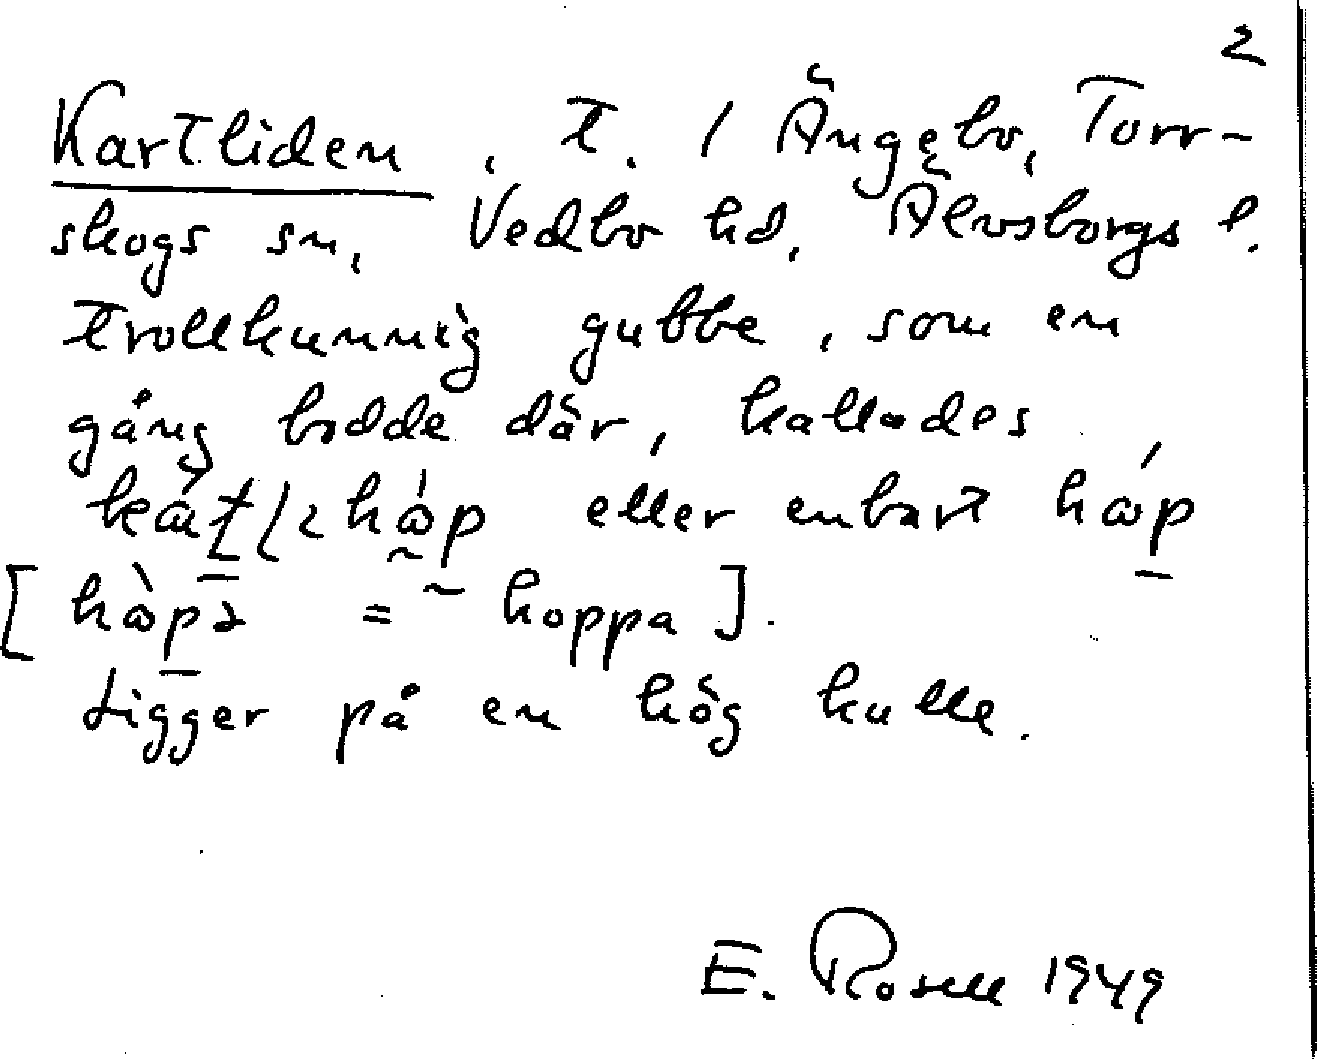 2
Kartliden, t. / Ängebo, Torr-
skogs sn, Vedbo hd, Älvsborgs l.
Trollkunnig gubbe, som en
gång bodde där, kallades
eller enbart
= hoppa].
Ligger på en hög kulle.
E. Rosell 1949